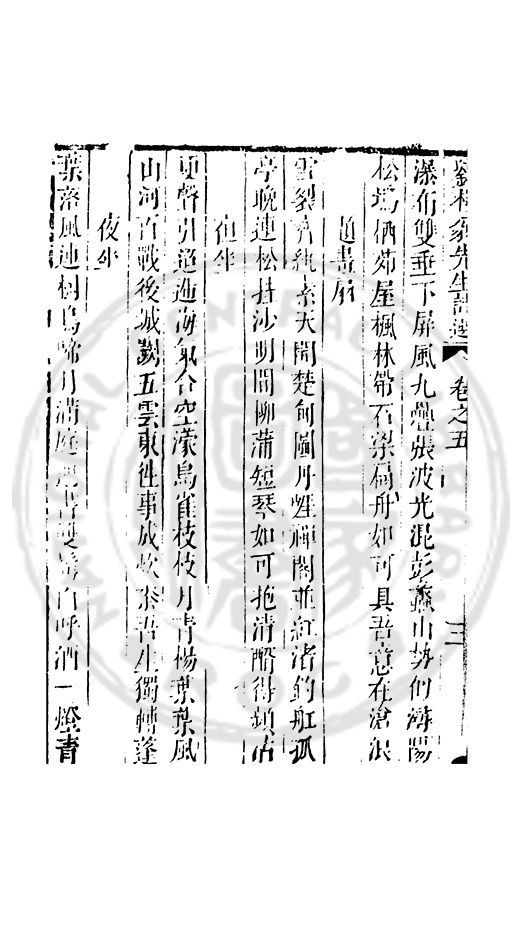 劉槎翁先生詩選 卷之五 三
瀑布雙垂下屏風九疊張波光混彭蠡山勢潯陽
松塢栖茆屋楓林帶石梁扁舟如可具吾意在滄浪
題畫扇
雪裂齊紈素天開楚甸圖丹崖禪閣並紅渚釣舡孤
亭晚連松桂沙明間柳蒲短琴如可抱清得頻沽
夜坐
更聲引迢遞海氣合空濛烏雀枝枝月青楊葉葉風
山河百戰後城闕五雲東往事成吾生獨轉蓬
夜坐
葉落風連樹烏啼月滿庭雙鬢白呼酒一燈青